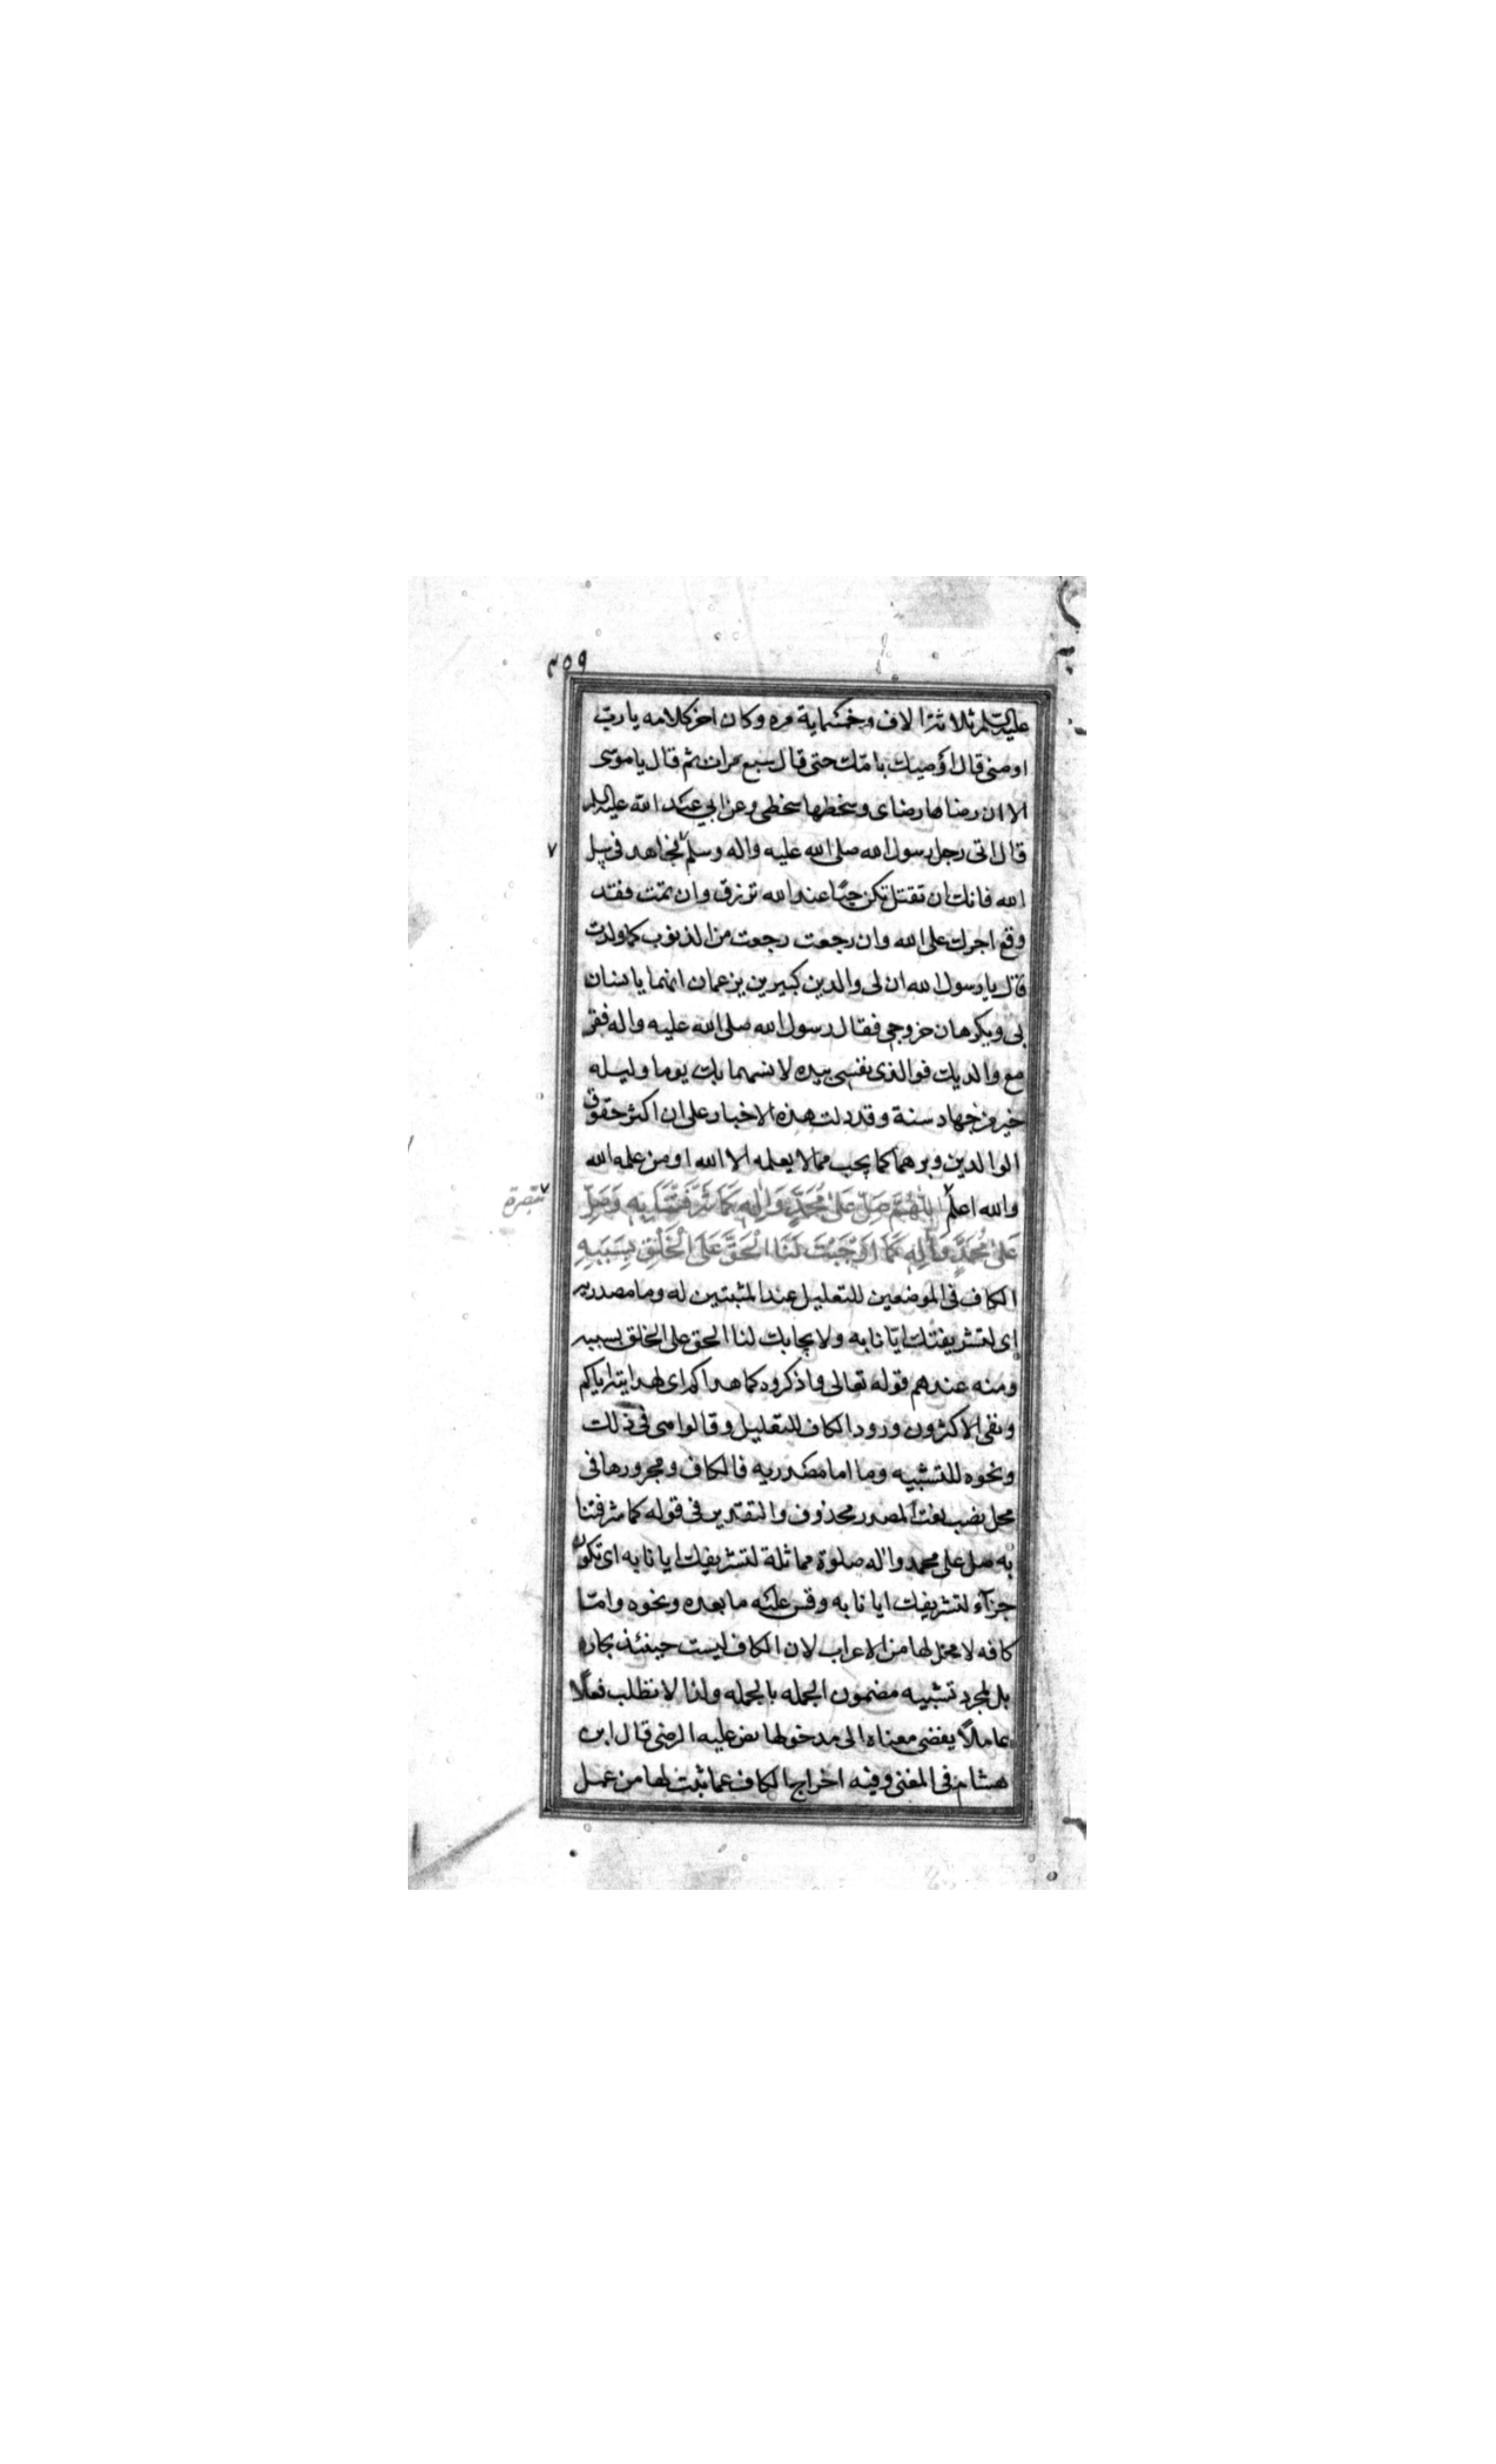 ٣٥٩
عليه السلم ثلاثة الاف وخمسماية مره وكان اخر كلامه يا رب
اوصنى قال اوصيك بامك حتى قال سبع مرات ثم قال يا موسى
الا ان رضاها رضاى وسخطها سخطى وعن ابي عبد الله عليه السلم
قال اتى رجل رسول الله صلى الله عليه واله وسلم ٧ فجاهد فى سبيل
٧
الله فانك ان تقتل تكن حيا عند الله ترزق وان تمت فقد
وقع اجرك على الله وان رجعت رجعت من الذنوب كما ولدت
قال يا رسول الله ان لى والدين كبيرين يزعمان انهما يانسان
بى ويكرهان خروجي فقال رسول الله صلى الله عليه واله فقر
مع والديك فوالذى نفسى بيده لانسهما بك يوما وليله
خير من جهاد سنة وقد دلت هذه الاخبار على ان اكثر حقوق
الوالدين وبرهما كما يجب مما لا يعلمه الا الله او من علمه الله
والله اعلم ٧ اللَّهُمَّ صَلِّ عَلى مُحَمَّدٍ وَالِهِ كَمَا شَرَّفْتَنَا بِهِ وَصَلِّ
٧ تبصرة
عَلى مُحَمَّدٍ وَآلِهِ كَمَا اَوْجَبْتَ لَنَا الْحَقَّ عَلَى الْخَلْقِ بِسَبَبِهِ
الكاف فى الموضعين للتعليل عند المثبتين له وما مصدريه
اى لتشريفك ايّانا به ولايجابك لنا الحق على الخلق بسببه
ومنه عندهم قوله تعالى واذكروه كما هداكم اى لهدايته اياكم
ونفى الاكثرون ورود الكاف للتعليل وقالوا هى فى ذلك
ونحوه للتشبيه وما اما مصدريه فالكاف ومجرورها فى
محل نصب نعت لمصدر محذوف والتقدير فى قوله كما شرفتنا
به صل على محمد واله صلوة مماثلة لتشريفك ايانا به اى تكون
جزآء لتشريفك ايانا به وقس عليه ما بعده ونحوه وامّا
كافه لا محل لها من الاعراب لان الكاف ليست حينئذ بجاره
بل لمجرد تشبيه مضمون الجمله بالجمله ولذا لا تطلب فعلًا
عاملًا يفضى معناه الى مدخولها نص عليه الرضى قال ابن
هشام فى المغنى وفيه اخراج الكاف عما ثبت لها من عمل